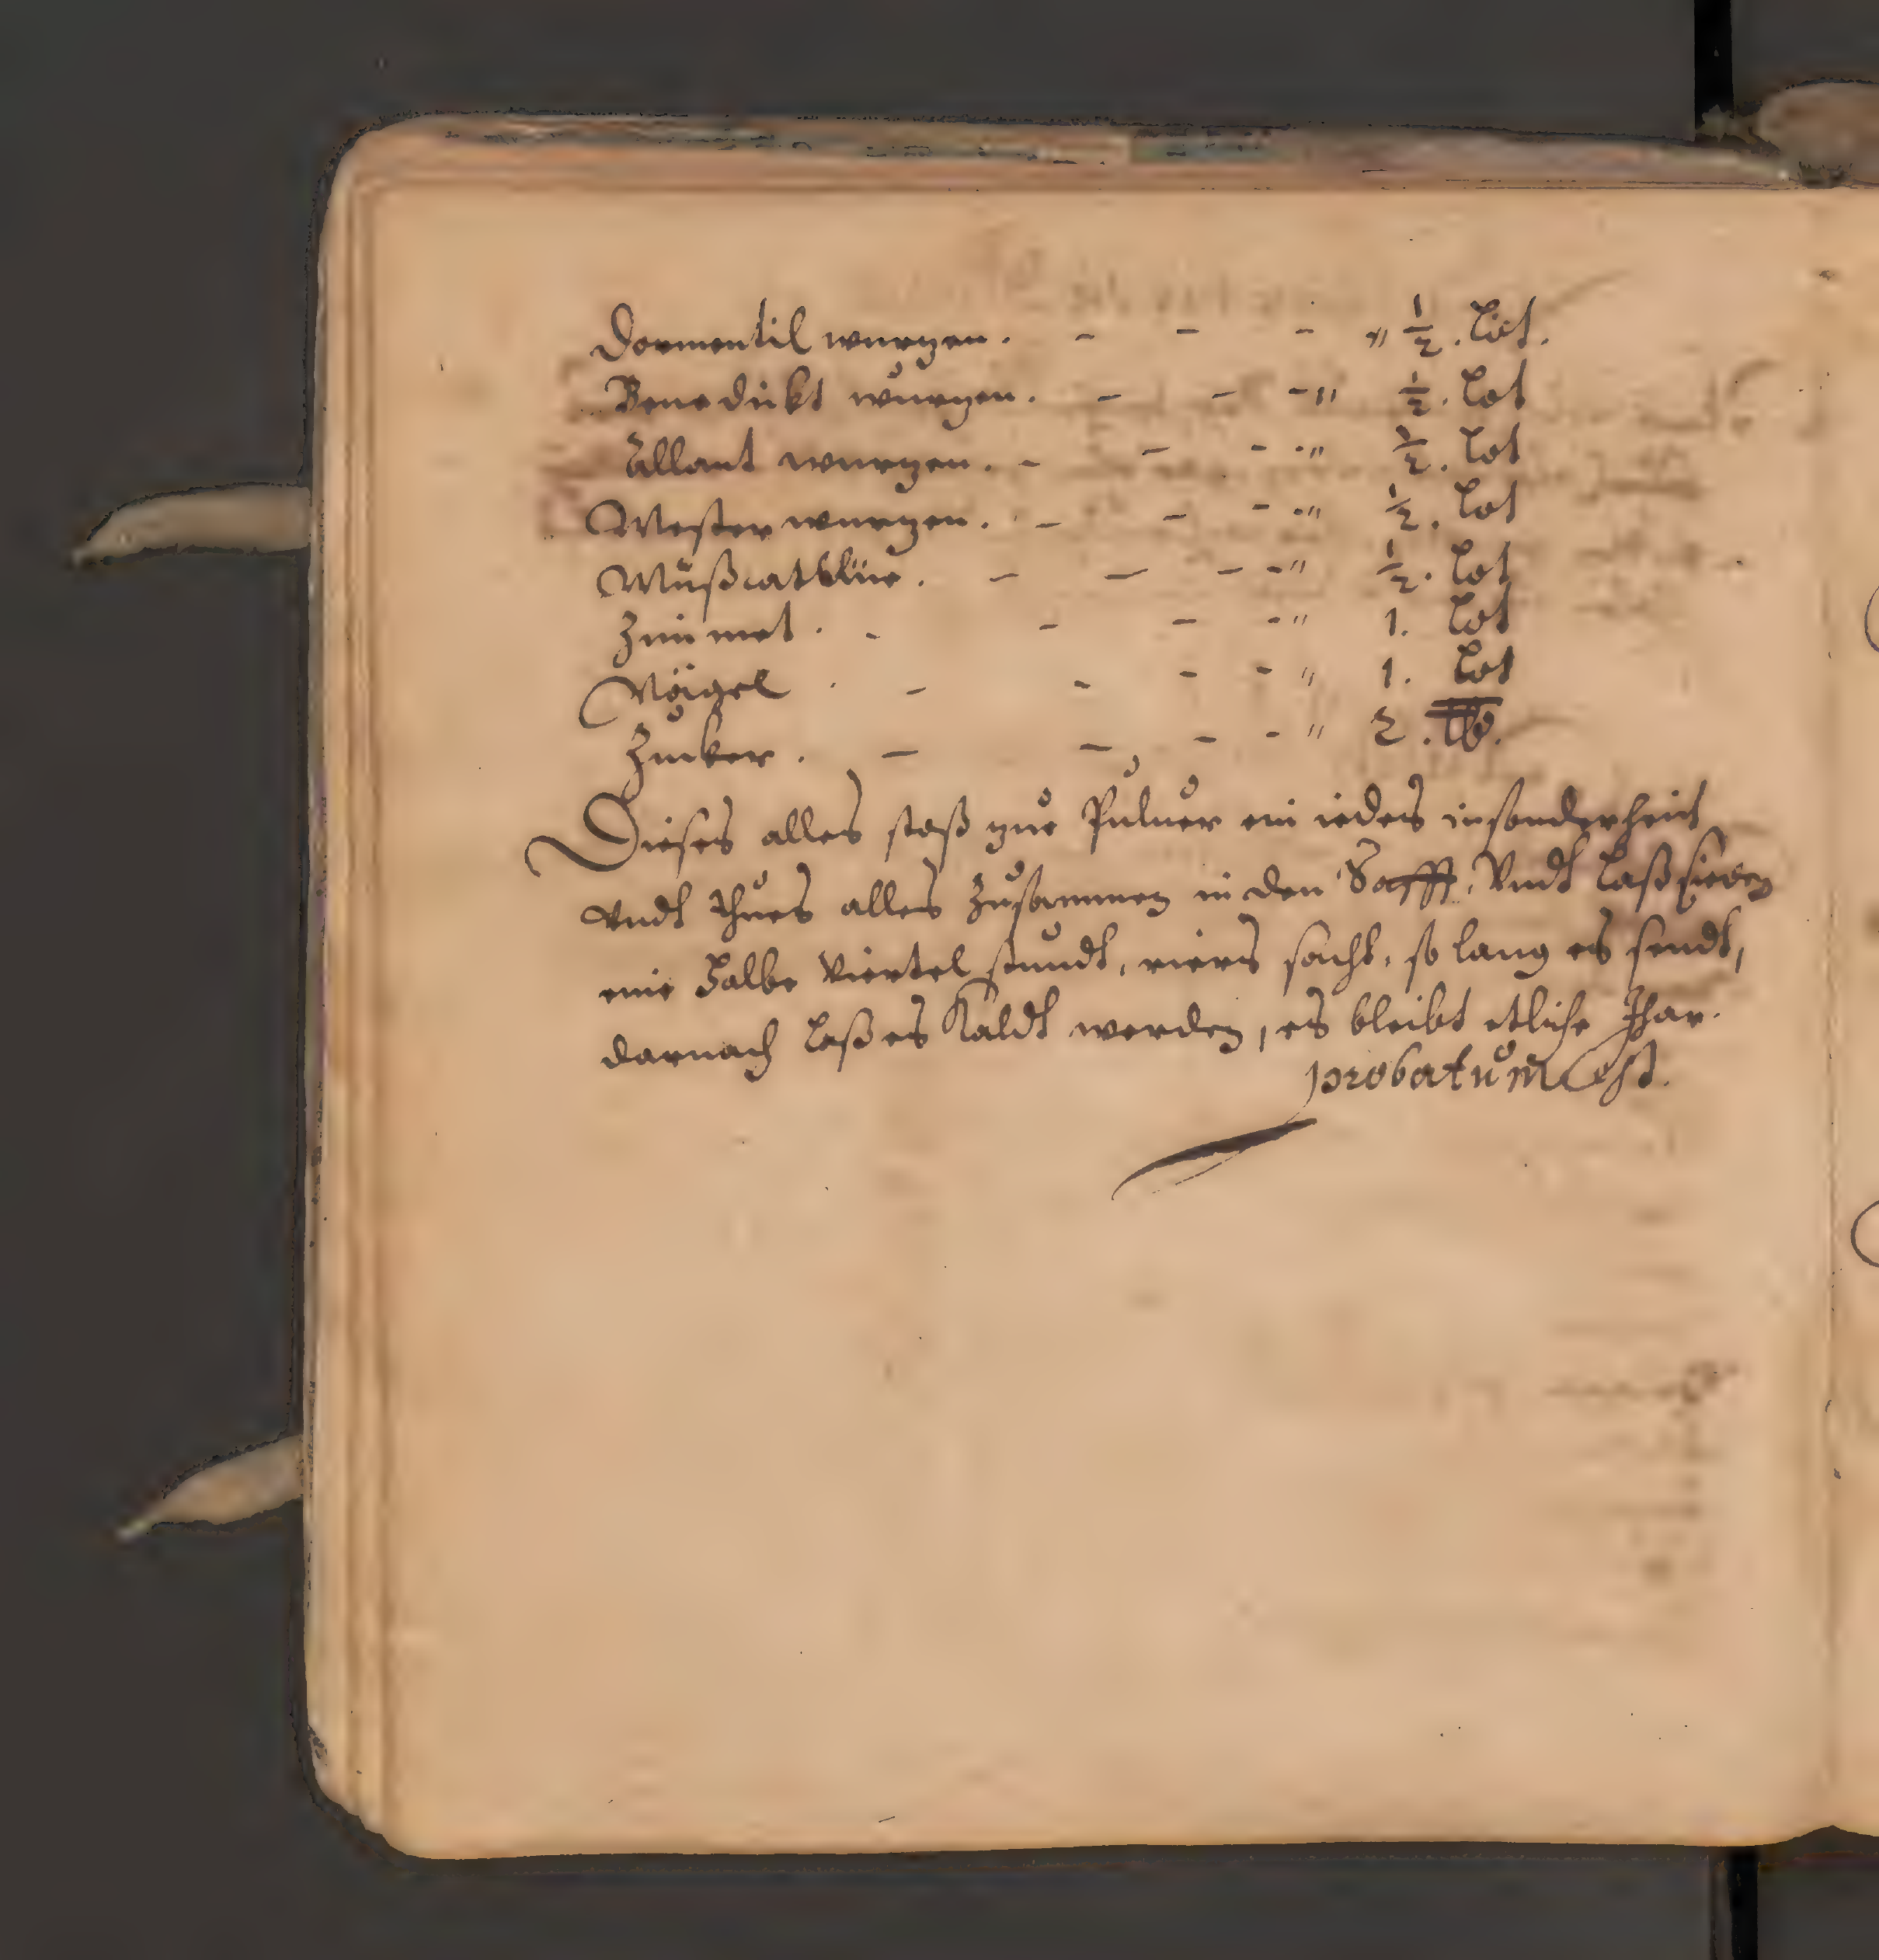 Dormentil wurtzen. - - - „ ½. Lot.
Benedickt wurtzen. - - - „ ½. Lot
Allant wurtzen. - - - „ ½. Lot
Mester wurtzen. - - - „ ½. Lot
Mußcatblüe. - - - - „ ½. Lot
Zimmet. - - - - „ 1. Lot
Nägel. - - - - „ 1. Lot
Zucker. - - - - „ 2. ℔.
Dieses alles stoß zue Puluer ein iedes insonderheit
Vndt thues alles Zusammen in den Safft, Vndt laß sieden
eine halbe Viertel stundt, riers sacht, so lang es seudt,
darnach laß es Kaldt werden, es bleibt etliche Jhar.
probatum est.